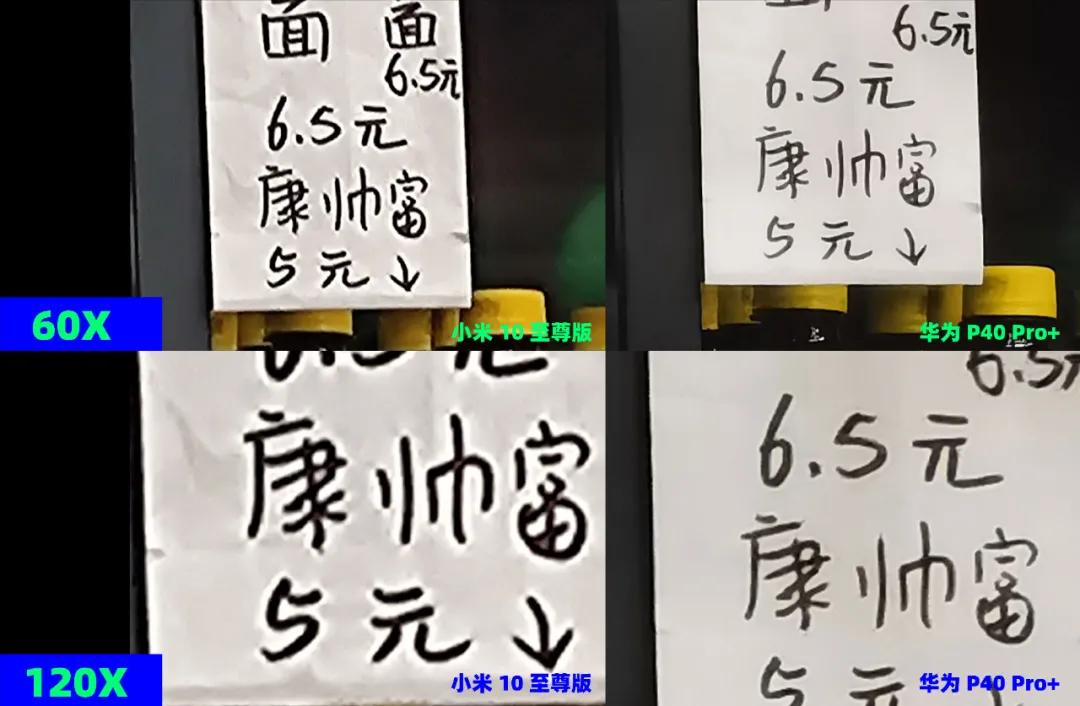 面 面
6.5元
6.5元
康帅富
5元↓
60X
小米 10 至尊版
6.5元
6.5元
康帅富
5元↓
华为 P40 Pro+
康帅富
5元↓
120X
小米 10 至尊版
6.5
6.5元
康帅富
5元
华为 P40 Pro+